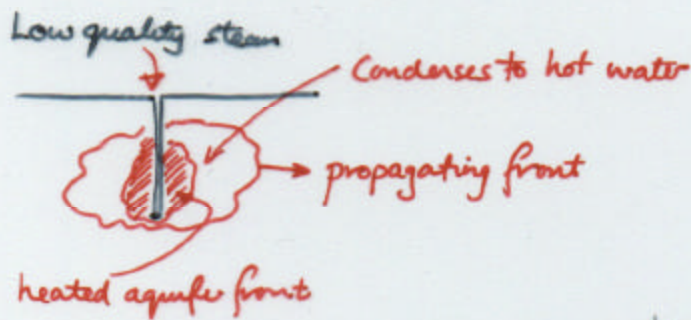 Low quality steam
Condenses to hot water
propagating front
heated aquifer front